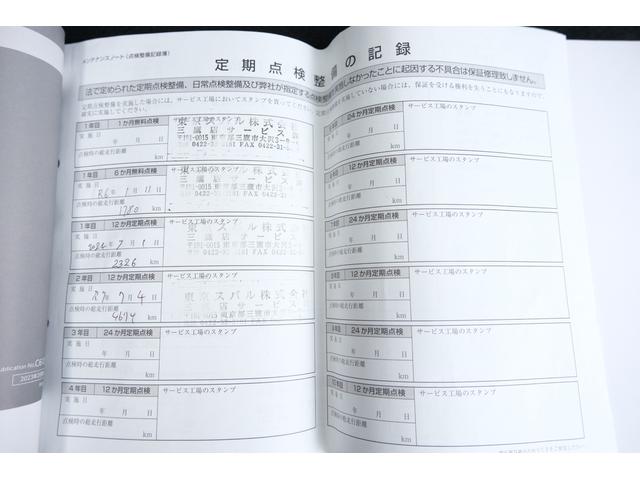 メンテナンスノート（点検整備記録簿）
定期点検整備の記録
法で定められた定期点検整備、日常点検整備及び弊社が指定する点検整備
実施しなかったことに起因する不具合は保証修理致しません。
定期点検整備を実施した場合には、サービス工場においてスタンプを貰ってください。
確実に実施してください。
を実施していない場合には、保証を受ける権利を失うこともなりますので、
1年目 1か月無料点検
サービス工場のスタンプ
実施日
年 月 日
点検時の総走行距離
km
東京スバル株式会社
三鷹店サービス
〒181-0015 東京都三鷹市大沢
0422-31-
1年目 6か月無料点検
サービス工場のスタンプ
実施日
R6年1月11日
点検時の総走行距離
1780 km
東京スバル株式会社
三鷹店サービス
〒181-0015 東京都三鷹市大沢
0422-31- FAX 0422-
1年目 12か月定期点検
サービス工場のスタンプ
実施日
2024年7月1日
点検時の総走行距離
2326 km
東京スバル株式会社
三鷹店サービス
〒181-0015 東京都三鷹市大沢
2年目 12か月定期点検
サービス工場のスタンプ
実施日
R7年7月4日
点検時の総走行距離
4674 km
東京スバル株式会社
三鷹店サービス
3年目 24か月定期点検
サービス工場のスタンプ
実施日
年 月 日
点検時の総走行距離
km
4年目 12か月定期点検
サービス工場のスタンプ
実施日
年 月 日
点検時の総走行距離
km
24か月定期点検
サービス工場のスタンプ
年 月 日
点検時の総走行距離
km
12か月定期点検
サービス工場のスタンプ
年 月 日
点検時の総走行距離
km
24か月定期点検
サービス工場のスタンプ
年 月 日
点検時の総走行距離
km
12か月定期点検
サービス工場のスタンプ
年 月 日
点検時の総走行距離
km
24か月定期点検
サービス工場のスタンプ
年 月 日
点検時の総走行距離
km
12か月定期点検
サービス工場のスタンプ
年 月 日
点検時の総走行距離
km
Publication No.